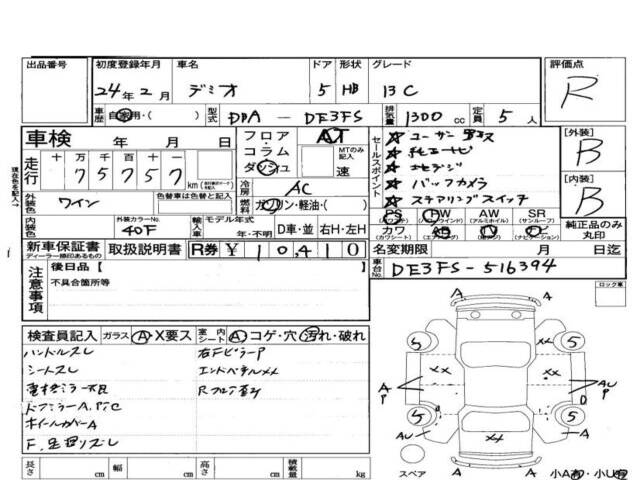 出品番号 初度登録年月 車名 ドア 形状 グレード 評価点
24年2月 デミオ 5 HB 13C R
車歴 自家用・( ) 型式 DBA - DE3FS 排気量 1300 cc 定員 5 人
車検 年 月 日 フロア AT セールスポイント ☆ユーザー買取 [外装]
コラム MTのみ記入 ☆純正ナビ B
走行 十 万 千 百 十 一 ダッシュ 速 ☆地デジ
75757 km 冷房 AC ☆バックカメラ [内装]
外装色 ワイン 色替車は色替前色も記入 燃料 ガソリン・軽油・( ) ☆ステアリングスイッチ B
PS PW AW SR
(パワステ) (パワーウインド) (アルミホイル) (サンルーフ)
内装色 外装カラーNo. 40F 輸入車 モデル年式 年・不明 D車・並 右H・左H カワ AB TV ナビ 純正品のみ丸印
(カワシート) (エアバッグ) (ナビゲーション)
新車保証書 取扱説明書 R券 ¥10,410 名変期限 月 日迄
ディーラー捺印あるもの
注意事項 後日品【 】 車台No. DE3FS-516394
不具合箇所等 ロック車
検査員記入 ガラス A・X要ス 室内シート A コゲ・穴 汚れ・破れ
ハンドルスレ 右FピラーP
シートスレ エンドパネルメメ
電格ミラー不良 Rフロア歪み
ドアミラーA,P,C
ホイルカバーA
F.足廻リズレ
A A
XX XX XX
5 5 5 5
A P AU P D AU A
A A
長さ cm 幅 cm 高さ cm 積載量 kg スペア 小A有・小U有
現在色を記入→